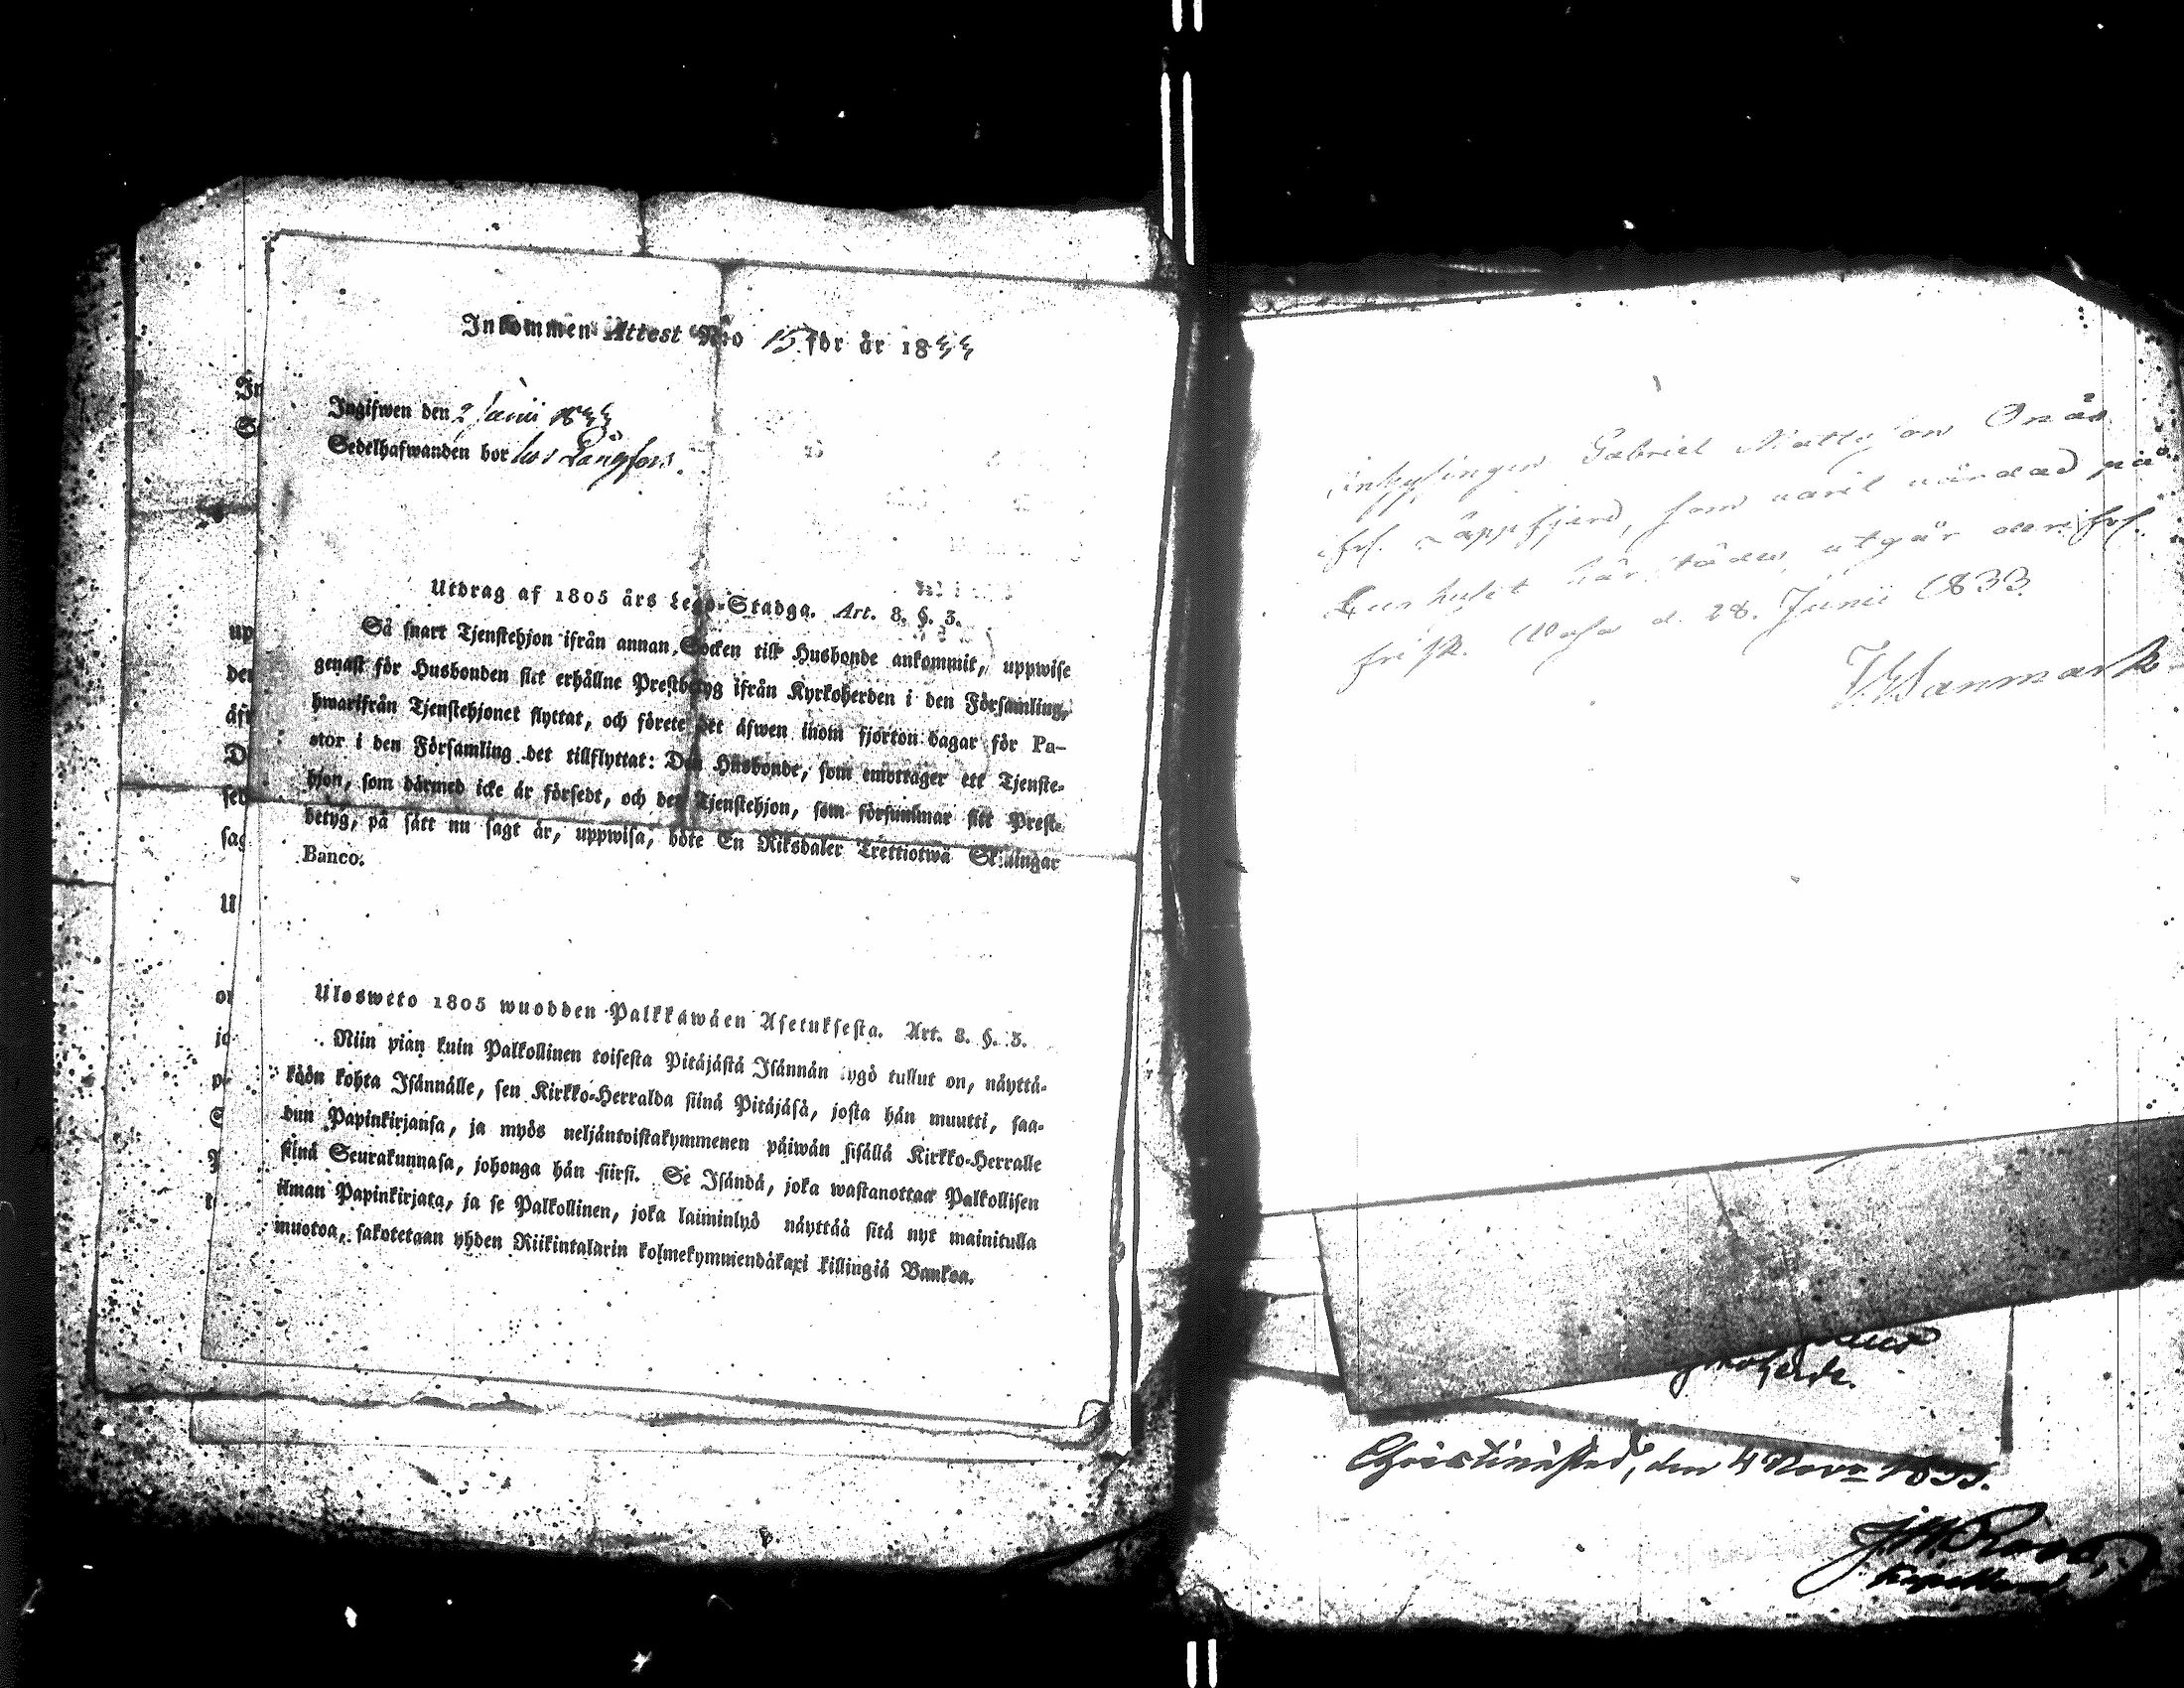 Inkommen Attest N:o 15 för år 1833
Ingifwen den 2 Junii 1833
Sedelhafwanden bor hos Långfors.
Utdrag af 1805 års Lego-Stadga. Art. 8. §. 3.
Så snart Tjenstehjon ifrån annan Socken till Husbonde ankommit, uppwise
genast för Husbonden sitt erhållne Prestbetyg ifrån Kyrkoherden i den Församling,
hwarifrån Tjenstehjonet flyttat, och förete det äfwen inom fjorton dagar för Pa-
stor i den Församling det tillflyttat: Den Husbonde, som emottager ett Tjenste-
hjon, som därmed icke är försedt, och det Tjenstehjon, som försummar sitt Prest-
betyg, på sätt nu sagt är, uppwisa, böte En Riksdaler Trettiotwå Skillingar
Banco.
Uloswеto 1805 wuodden Palkkawäen Asetuksesta. Art. 8. §. 3.
Niin pian kuin Palkollinen toisesta Pitäjästä Isännän tygö tullut on, näyttä-
köön kohta Isännälle, sen Kirkko-Herralda siinä Pitäjäsä, josta hän muutti, saa-
dun Papinkirjansa, ja myös neljäntoistakymmenen päiwän sisällä Kirkko-Herralle
siinä Seurakunnasa, johonga hän siirsi. Se Isändä, joka wastanottaa Palkollisen
ilman Papinkirjata, ja se Palkollinen, joka laiminlyö näyttää sitä nyt mainitulla
muotoa, sakotetaan yhden Riikintalarin kolmekymmendäkaxi killingiä Bankoa.
Inhysingen Gabriel Mattsson Onås
ifrl. Lappfjerd, som varit vårdad på
Curhuset härstädes, utgår derifrl.
frisk. Wasa d. 28. Junii 1833
Wanmark
Christinestad, den 4 Novr 1833.
Kapellan